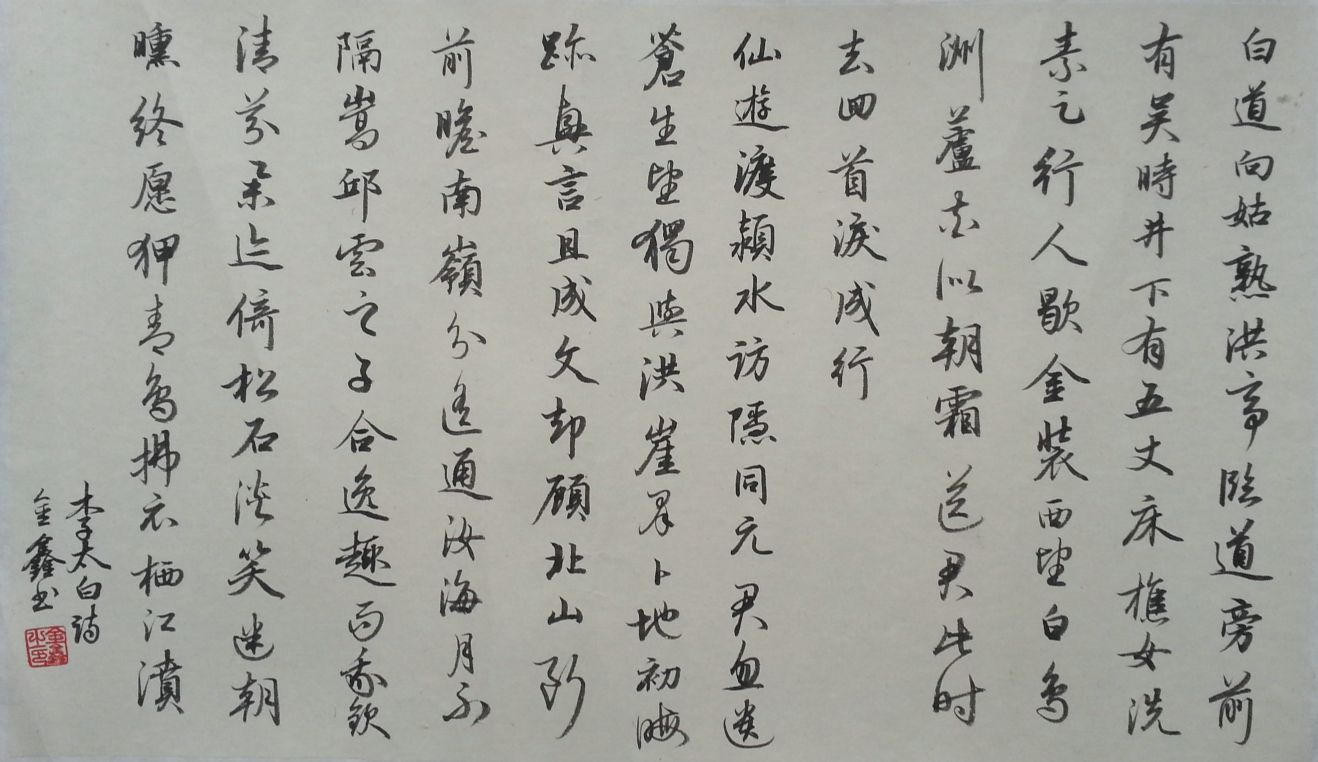 白道向姑熟洪亭臨道旁前
有吴時井下有五丈床樵女洗
素足行人歇金裝西望白鳥
洲蘆花似朝霜送君此时
去回首淚成行
仙遊渡潁水访隱同元君忽遗
蒼生望獨與洪崖羣卜地初晦
跡興言且成文却顧北山断
前瞻南嶺分遥通汝海月不
隔嵩邱雲之子合逸趣而我欽
清芬举迹倚松石淡笑迷朝
曛终愿狎青鳥拂衣栖江濆
李太白詩
金鑫书